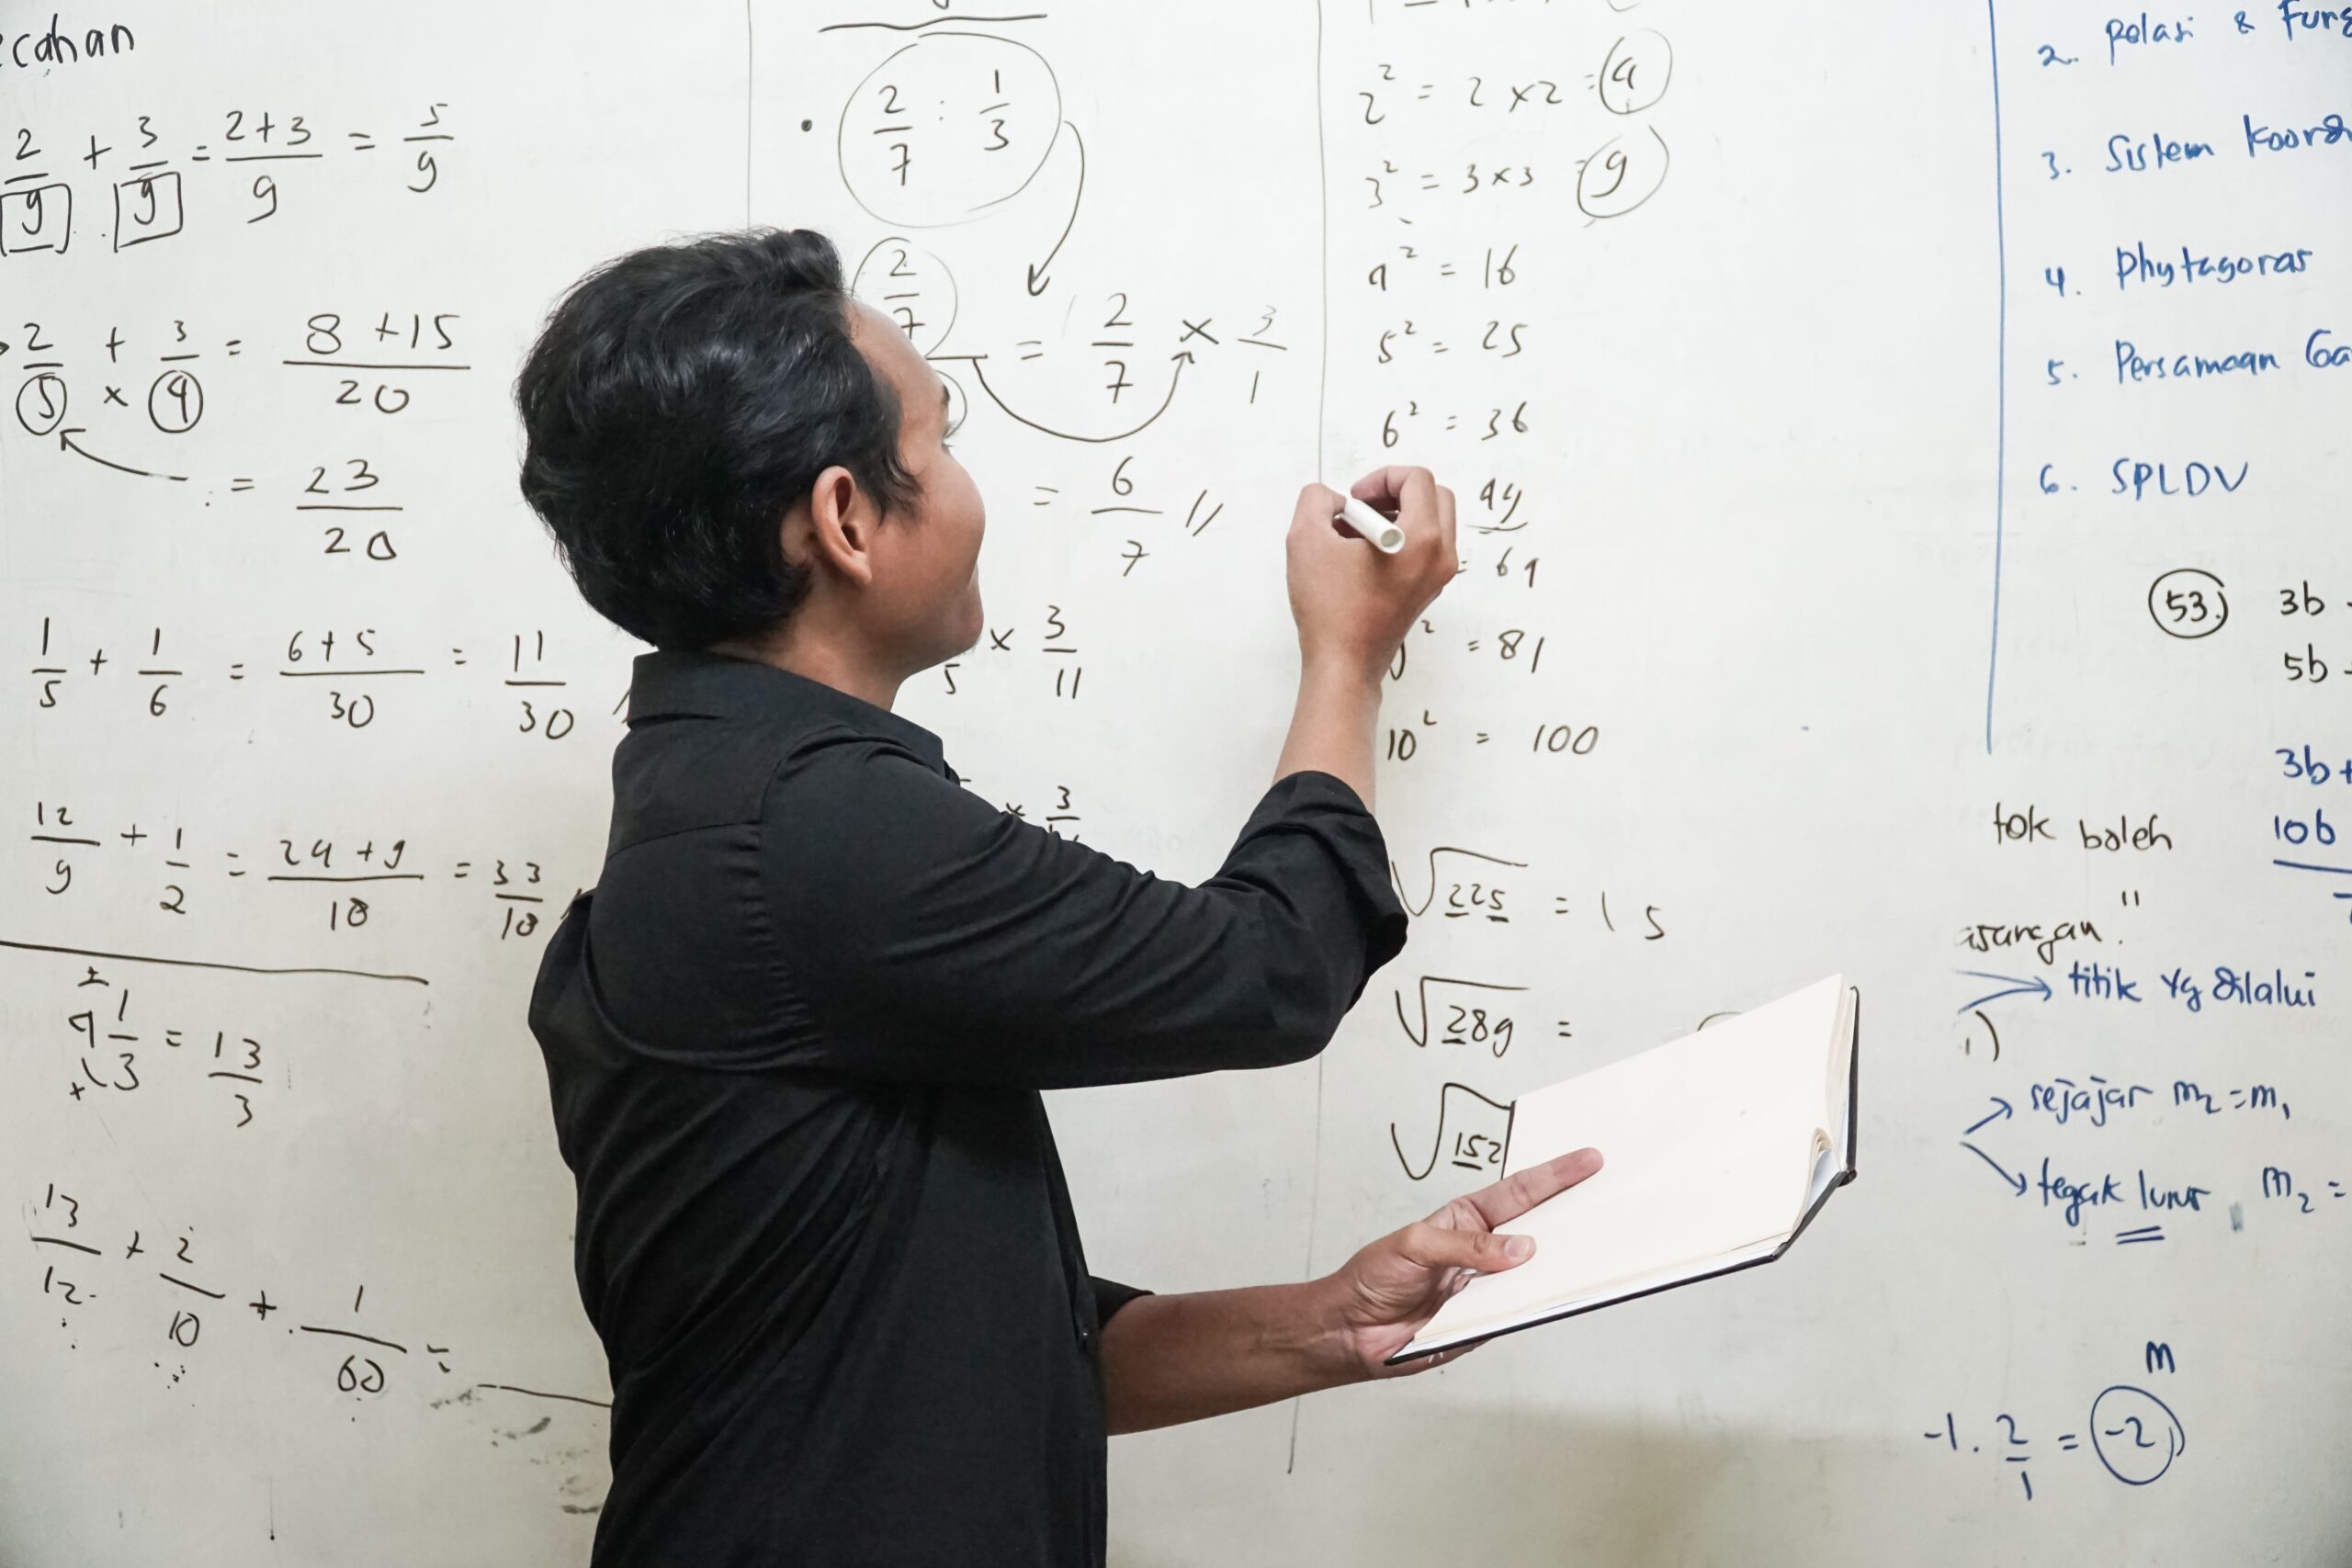 ecahan
2/9 + 3/9 = 2+3/9 = 5/9
2/5 + 3/4 = 8+15/20
×
= 23/20
1/5 + 1/6 = 6+5/30 = 11/30
12/9 + 1/2 = 24+9/18 = 33/18
4 1/3 = 13/3
13/12 + 2/10 + 1/60 =
2/7 : 1/3
2/7
= 2/7 × 3/1
= 6/7 //
5 × 3/11
× 3
2² = 2 × 2 = 4
3² = 3 × 3 = 9
4² = 16
5² = 25
6² = 36
49
= 64
² = 81
10² = 100
√225 = 15
√289 =
√152
2. Relasi & Fung
3. Sistem Koord
4. Phytagoras
5. Persamaan Ga
6. SPLDV
53. 3b
5b
3b+
10b
tok boleh
asangan."
titik yg dilalui
sejajar m₂=m₁
tegak lurus m₂ =
m
-1 . 2/1 = -2